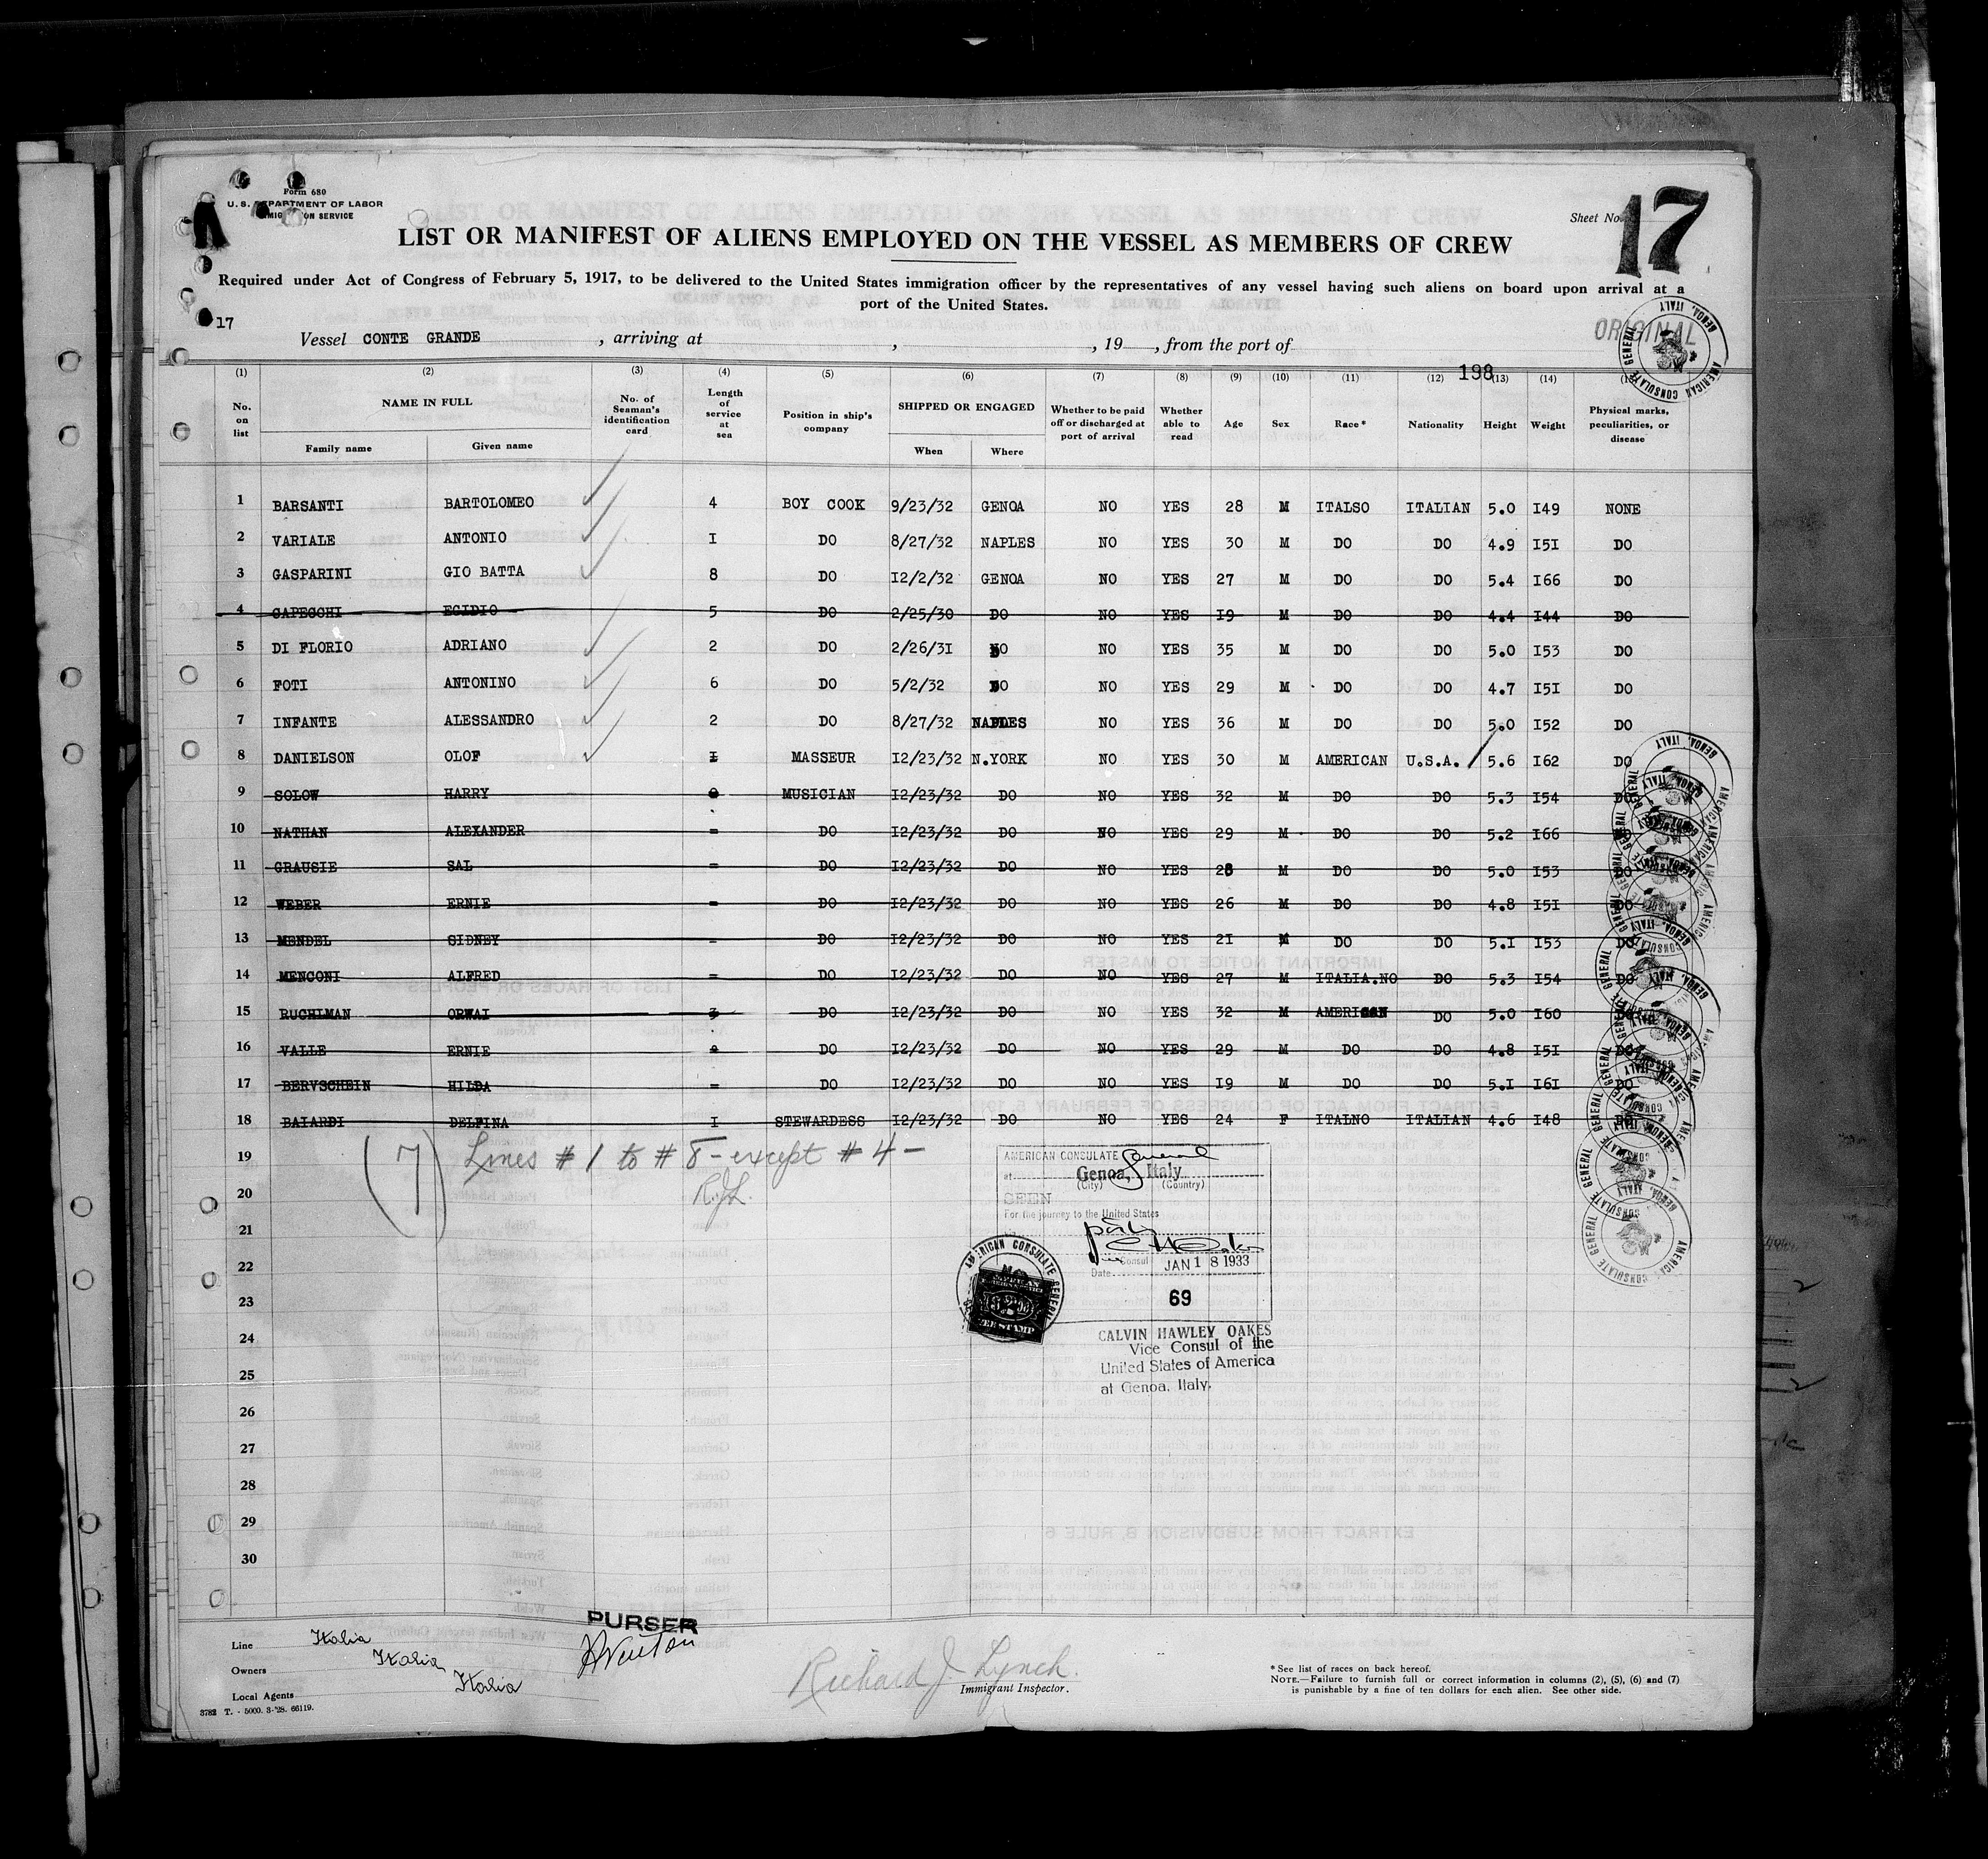 Form 680
U. S. DEPARTMENT OF LABOR
IMMIGRATION SERVICE
Sheet No. 17
LIST OR MANIFEST OF ALIENS EMPLOYED ON THE VESSEL AS MEMBERS OF CREW
Required under Act of Congress of February 5, 1917, to be delivered to the United States immigration officer by the representatives of any vessel having such aliens on board upon arrival at a
port of the United States.
17
ORIGINAL
Vessel CONTE GRANDE, arriving at , , 19 , from the port of
198
(1) (2) (3) (4) (5) (6) (7) (8) (9) (10) (11) (12) (13) (14)
No. on list NAME IN FULL Family name Given name No. of Seaman's identification card Length of service at sea Position in ship's company SHIPPED OR ENGAGED When Where Whether to be paid off or discharged at port of arrival Whether able to read Age Sex Race* Nationality Height Weight Physical marks, peculiarities, or disease
1 BARSANTI BARTOLOMEO 4 BOY COOK 9/23/32 GENOA NO YES 28 M ITALSO ITALIAN 5.0 I49 NONE
2 VARIALE ANTONIO I DO 8/27/32 NAPLES NO YES 30 M DO DO 4.9 I5I DO
3 GASPARINI GIO BATTA 8 DO I2/2/32 GENOA NO YES 27 M DO DO 5.4 I66 DO
4 CAPECCHI EGIDIO 5 DO 2/25/30 DO NO YES I9 M DO DO 4.4 I44 DO
5 DI FLORIO ADRIANO 2 DO 2/26/3I DO NO YES 35 M DO DO 5.0 I53 DO
6 FOTI ANTONINO 6 DO 5/2/32 DO NO YES 29 M DO DO 4.7 I5I DO
7 INFANTE ALESSANDRO 2 DO 8/27/32 NAPLES NO YES 36 M DO DO 5.0 I52 DO
8 DANIELSON OLOF I MASSEUR I2/23/32 N.YORK NO YES 30 M AMERICAN U.S.A. 5.6 I62 DO
9 SOLOW HARRY MUSICIAN I2/23/32 DO NO YES 32 M DO DO 5.3 I54 DO
10 NATHAN ALEXANDER = DO I2/23/32 DO NO YES 29 M DO DO 5.2 I66 DO
11 GRAUSIE SAL = DO I2/23/32 DO NO YES 28 M DO DO 5.0 I53 DO
12 WEBER ERNIE = DO I2/23/32 DO NO YES 26 M DO DO 4.8 I5I DO
13 MENDEL SIDNEY = DO I2/23/32 DO NO YES 2I M DO DO 5.I I53 DO
14 MENCONI ALFRED = DO I2/23/32 DO NO YES 27 M ITALIA.NO DO 5.3 I54 DO
15 RUCHLMAN ORWAI DO I2/23/32 DO NO YES 32 M AMERICAN DO 5.0 I60 DO
16 VALLE ERNIE DO I2/23/32 DO NO YES 29 M DO DO 4.8 I5I DO
17 BERVSCHEIN HILDA = DO I2/23/32 DO NO YES I9 M DO DO 5.I I6I DO
18 BAIARDI DELFINA I STEWARDESS I2/23/32 DO NO YES 24 F ITALNO ITALIAN 4.6 I48 DO
19
20
21
22
23
24
25
26
27
28
29
30
(7) Lines #1 to #8 - except #4 -
RJL.
AMERICAN CONSULATE General
at Genoa, Italy
(City) (Country)
SEEN
For the journey to the United States
Vice Consul
Date JAN 18 1933
69
AMERICAN CONSULATE GENERAL
FEE STAMP
CALVIN HAWLEY OAKES
Vice Consul of the
United States of America
at Genoa, Italy.
AMERICAN CONSULATE GENERAL GENOA, ITALY
PURSER
Line Italia
Owners Italia
Local Agents Italia
3782 T. - 5000. 3-'28. 66119.
Richard J. Lynch.
Immigrant Inspector.
* See list of races on back hereof.
NOTE.—Failure to furnish full or correct information in columns (2), (5), (6) and (7)
is punishable by a fine of ten dollars for each alien. See other side.